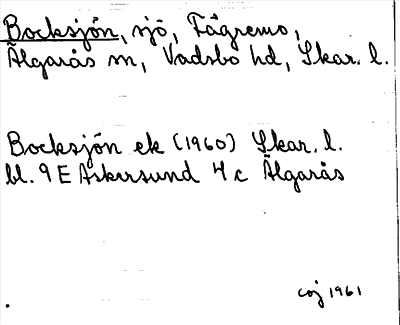 Bocksjön, sjö, Fågremo,
Älgarås sn, Vadsbo hd, Skar. l.
Bocksjön ek (1960) Skar. l.
bl. 9 E Askersund 4 c Älgarås
coj 1961